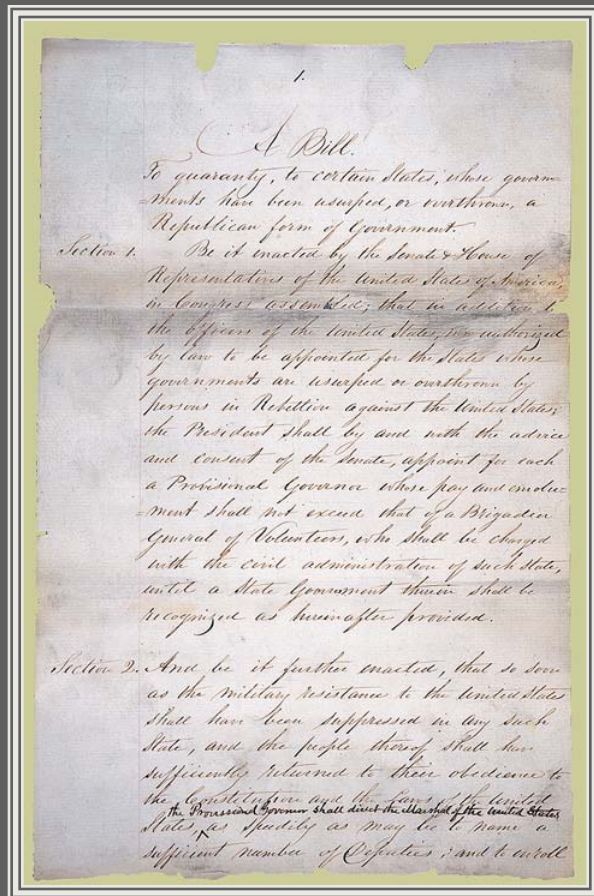 1.
A Bill.
To guaranty, to certain States, whose govern=
=ments have been usurped, or overthrown, a
Republican form of Government.
Section 1. Be it enacted by the Senate & House of
Representatives of the United States of America,
in Congress assembled; that in addition to
the Officers of the United States, now authorized
by law to be appointed for the States whose
governments are usurped or overthrown by
persons in Rebellion against the United States;
the President shall by and with the advice
and consent of the Senate, appoint for each
a Provisional Governor whose pay and emolu=
=ment shall not exceed that of a Brigadier
General of Volunteers, who shall be charged
with the civil administration of such State,
until a State Government therein shall be
recognized as hereinafter provided.
Section 2. And be it further enacted, that so soon
as the military resistance to the United States
shall have been suppressed in any such
State, and the people thereof shall have
sufficiently returned to their obedience to
the Constitution and the Laws of the United
the Provisional Governor shall direct the Marshal of the United States
States, as speedily as may be to name a
sufficient number of Deputies; and to enroll